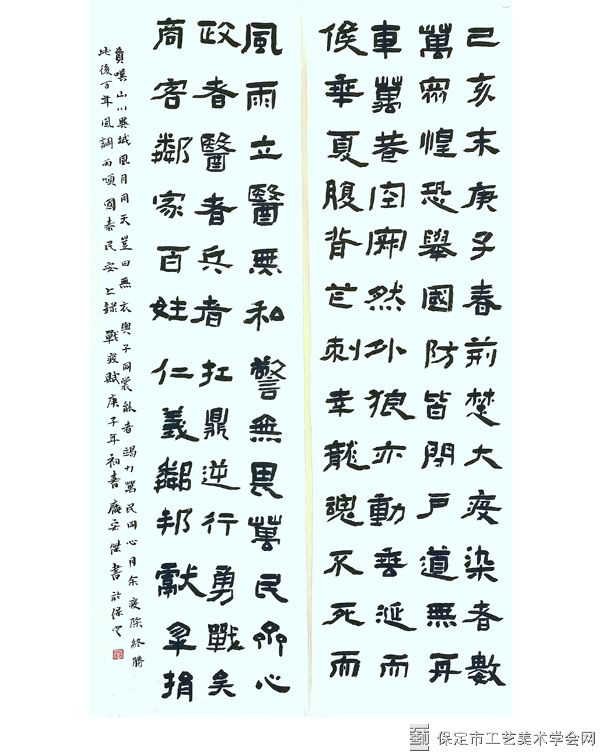 己亥末庚子春荊楚大疫染者數
萬眾惶恐舉國防皆閉戶道無舟
車萬巷空寂然外狼亦動垂涎而
候華夏腹背芒刺幸龍魂不死而
風雨立醫無私警無畏萬民齊心
政者醫者兵者扛鼎逆行勇戰矣
商客鄰家百姓仁義鄰邦獻捐
嘆山川異域風月同天豈曰無衣與子同裳者竭力萬民同心月余疫除終勝
此後百年風調雨順國泰民安上錄戰疫賦庚子年初書書於保定
保定市工艺美术学会网